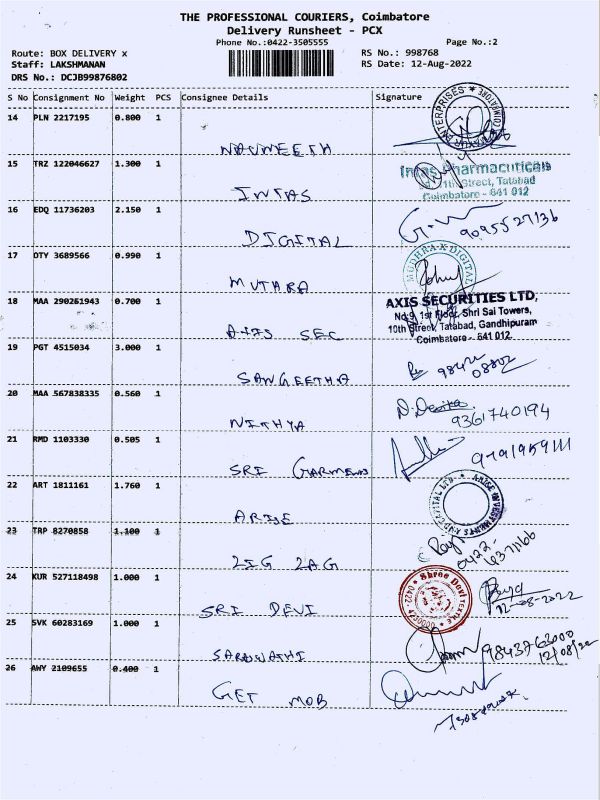 THE PROFESSIONAL COURIERS, Coimbatore
Delivery Runsheet - PCX
Phone No.:0422-3505555 Page No.:2
Route: BOX DELIVERY x RS No.: 998768
Staff: LAKSHMANAN RS Date: 12-Aug-2022
DRS No.: DCJB99876802
S No Consignment No Weight PCS Consignee Details Signature
14 PLN 2217195 0.800 1
NAVNEETH
ENTERPRISES COIMBATORE
15 TRZ 122046627 1.300 1
INTAS
Intas Pharmaceuticals
11th Street, Tatabad
Coimbatore - 641 012
16 EDQ 11736203 2.150 1
DIGITAL
9095527136
17 OTY 3689566 0.990 1
MUTHRA
MUDHRA-X-DIGITAL
18 MAA 290261943 0.700 1
AXIS SEC
AXIS SECURITIES LTD,
No:9, 1st Floor, Shri Sai Towers,
10th Street, Tatabad, Gandhipuram
Coimbatore - 641 012
19 PGT 4515034 3.000 1
SANGEETHA
08802
20 MAA 567838335 0.560 1
NITHYA
9361740194
21 RMD 1103330 0.505 1
SRI GARMENTS
22 ART 1811161 1.760 1
ARISE
ARISE INVESTMENTS AND CAPITAL LTD
23 TRP 8270858 1.100 1
ZIG ZAG
0422-
4371166
24 KUR 527118498 1.000 1
SRI DEVI
Shree Devi TEXTILE
12-08-2022
25 SVK 60283169 1.000 1
SARAWATHI
9843763000
12/08/22
26 AWY 2109655 0.400 1
GET MOB